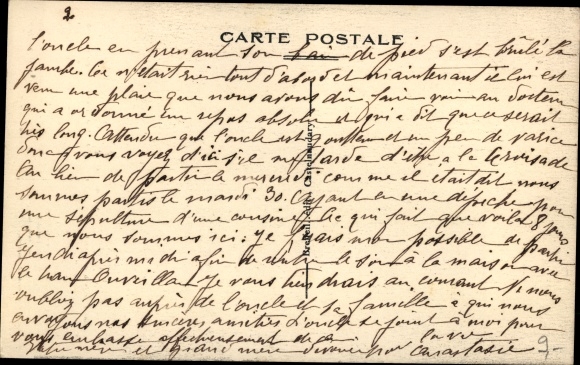 2
CARTE POSTALE
l'oncle en prenant son bain de pied s'est brûlé la
jambe. Ce n'était rien tout d'abord et maintenant il lui est
venu une plaie que nous avons dû faire voir au docteur
qui a ordonné un repos absolu et qui a dit que ce serait
très long. Attendu que l'oncle est goutteux et un peu de varice
donc vous voyez d'ici s'il me tarde d'être à la Croisade
Au lieu de partir le mercredi comme il était dit nous
sommes partis le mardi 30. Ayant eu une dépêche pour
une sépulture d'une cousine. Ce qui fait que voilà 8 jours
que nous sommes ici. Je fais mon possible de partir
après midi afin de le soir à la maison avec
le Ouveillan. Je vous tiendrais au courant. Ne nous
oubliez pas auprès de l'oncle et sa famille à qui nous
envoyons nos sincères amitiés. L'oncle se joint à moi pour
vous embrasser affectueusement de la vie
et grand mère pour Anastasie
9